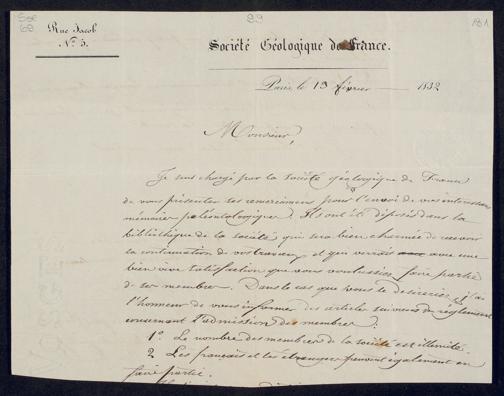 Soc
68
29
181
Rue Jacob
N.º 5.
Société Géologique de France.
Paris le 13 février 1832
Monsieur,
Je suis chargé par la société géologique de France
de vous présenter ses remerciemens pour l'envoi de vos intéressans
mémoires paléontologiques. Ils ont été déposés dans la
bibliothèque de la société qui sera bien charmée de recevoir
la continuation de vos travaux, et qui verrait avec une
bien vive satisfaction que vous voulussiez faire partie
de ses membres. Dans le cas que vous le désiriez j'ai
l'honneur de vous informer des articles suivans du règlement
concernant l'admission des membres:
1º. Le nombre des membres de la société est illimité.
2 Les français et les étrangers peuvent également en
faire partie.